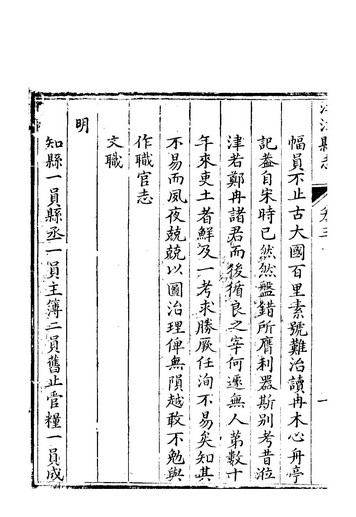 幅員不止古大國百里素號難治讀冉木心舟亭
記蓋自宋時已然然盤錯所膺利器斯别考昔涖
津若鄭冉諸君而後循良之宰何遽無人第數十
年來吏土者鮮及一考求勝厥任洵不易矣知其
不易而夙夜兢兢以圖治理俾無隕越敢不勉與
作職官志
文職
明
知縣一員縣丞一員主簿二員舊止管糧一員成